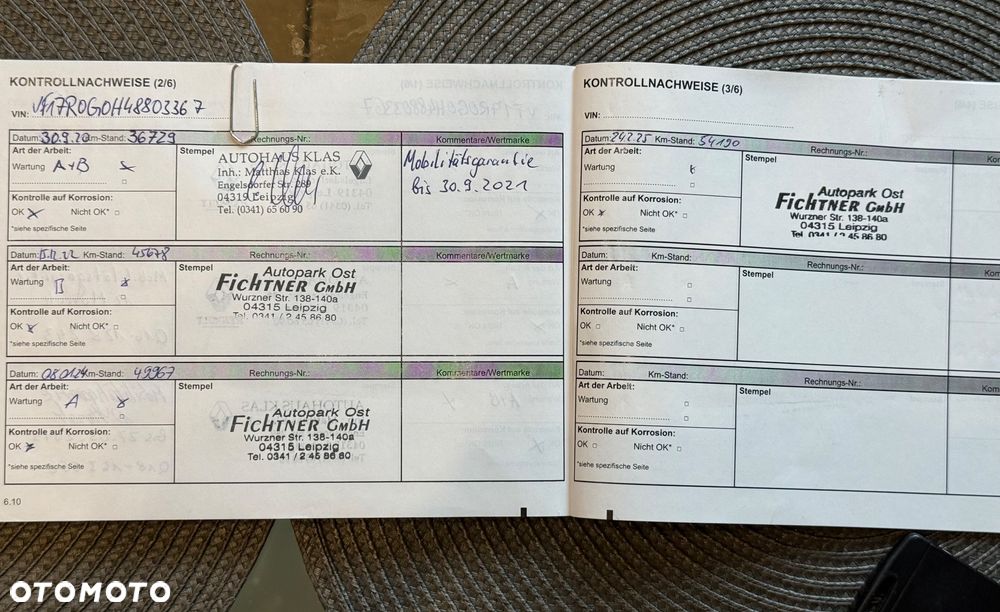 KONTROLLNACHWEISE (2/6)
VIN: VF17R0G0H48803367
Datum: 30.9.20 Km-Stand: 36729 Rechnungs-Nr.: Kommentare/Wertmarke
Art der Arbeit:
Wartung A+B
Kontrolle auf Korrosion:
OK Nicht OK*
*siehe spezifische Seite
Stempel
AUTOHAUS KLAS
Inh.: Matthias Klas e.K.
Engelsdorfer Str. 289
04319 Leipzig
Tel. (0341) 65 60 90
Mobilitätsgarantie
bis 30.9.2021
Datum: Km-Stand: 45678 Rechnungs-Nr.: Kommentare/Wertmarke
Art der Arbeit:
Wartung B
Kontrolle auf Korrosion:
OK Nicht OK*
*siehe spezifische Seite
Stempel
Autopark Ost
FICHTNER GMBH
Wurzner Str. 138-140a
04315 Leipzig
Tel. 0341 / 2 45 86 80
Datum: 08.01.24 Km-Stand: 49967 Rechnungs-Nr.: Kommentare/Wertmarke
Art der Arbeit:
Wartung A
Kontrolle auf Korrosion:
OK Nicht OK*
*siehe spezifische Seite
Stempel
Autopark Ost
FICHTNER GMBH
Wurzner Str. 138-140a
04315 Leipzig
Tel. 0341 / 2 45 86 80
6.10
KONTROLLNACHWEISE (3/6)
VIN:
Datum: 24.2.25 Km-Stand: 54190 Rechnungs-Nr.: Kom
Art der Arbeit:
Wartung
Kontrolle auf Korrosion:
OK Nicht OK*
*siehe spezifische Seite
Stempel
Autopark Ost
FICHTNER GMBH
Wurzner Str. 138-140a
04315 Leipzig
Tel. 0341 / 2 45 86 80
Datum: Km-Stand: Rechnungs-Nr.: Kom
Art der Arbeit:
Wartung
Kontrolle auf Korrosion:
OK Nicht OK*
*siehe spezifische Seite
Stempel
Datum: Km-Stand: Rechnungs-Nr.: Kom
Art der Arbeit:
Wartung
Kontrolle auf Korrosion:
OK Nicht OK*
*siehe spezifische Seite
Stempel
OTOMOTO